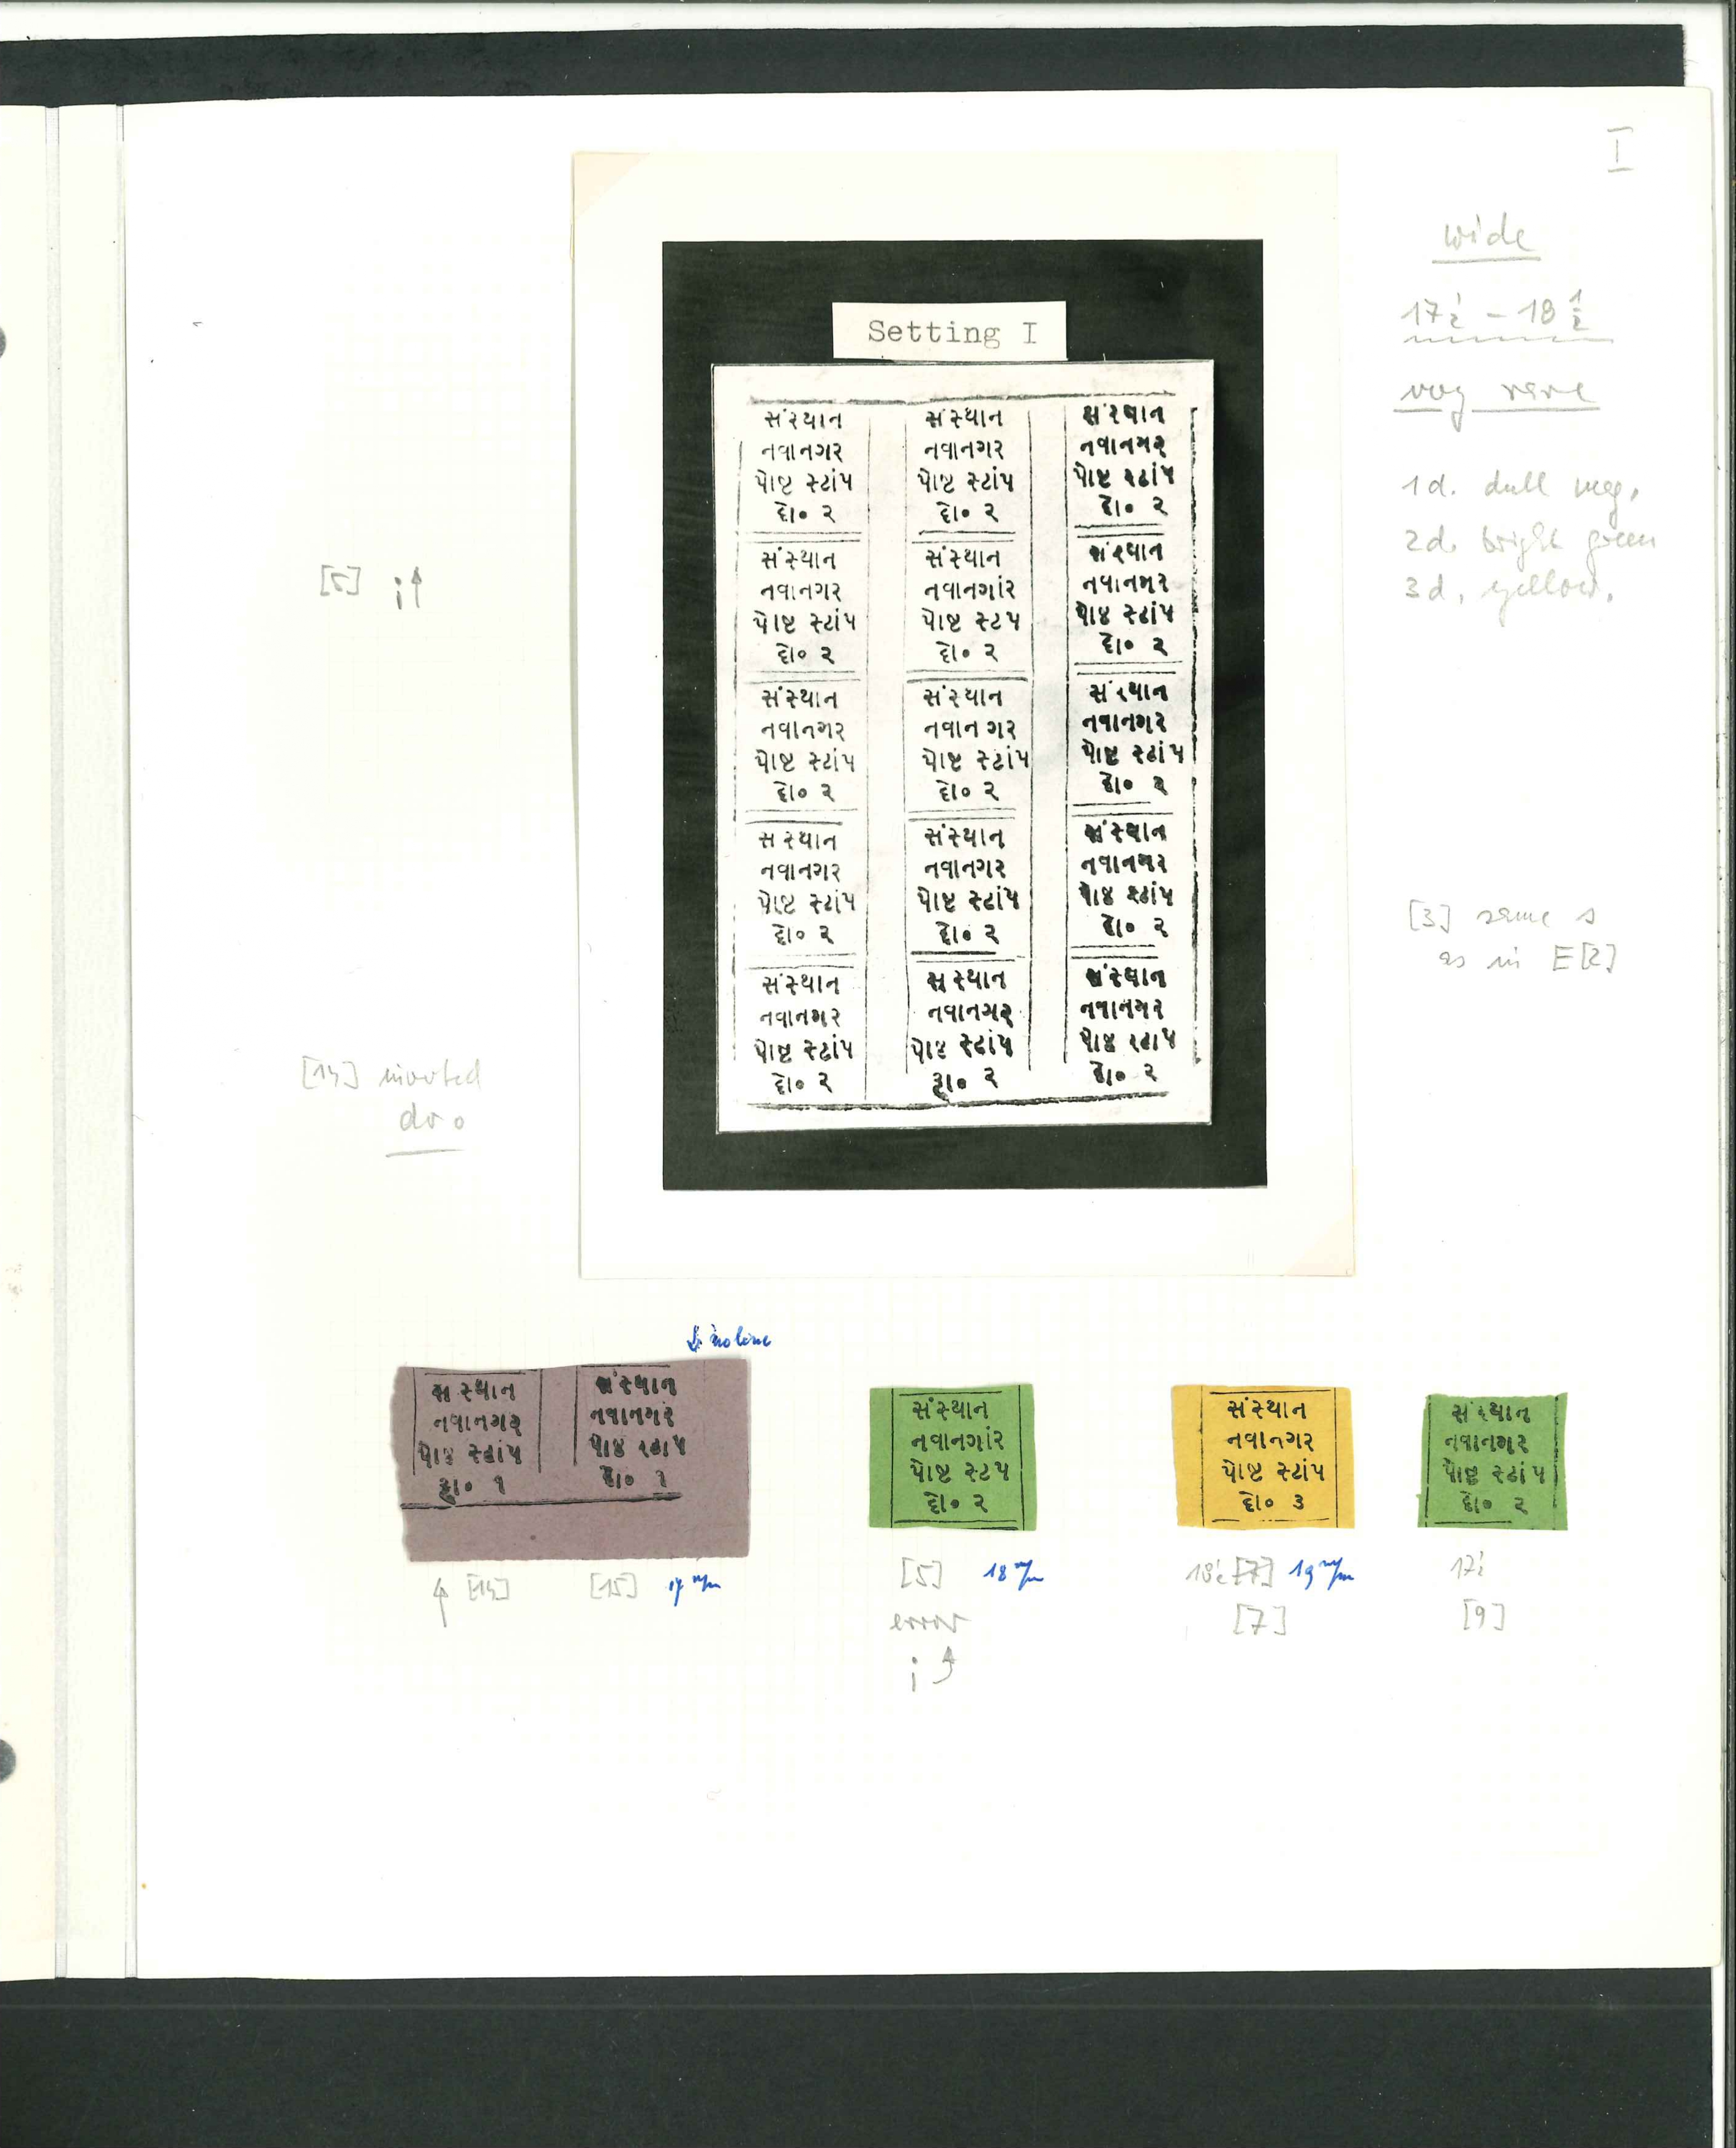 I
wide
17½ - 18½
very rare
1d. dull mag.
2d. bright green
3d. yellow.
[5] i↑
[3] same s
as in E[2]
[14] inverted
do
Setting I
સંસ્થાન સંસ્થાન સંસ્થાન
નવાનગર નવાનગર નવાનગર
પોષ્ટ સ્ટાંપ પોષ્ટ સ્ટાંપ પોષ્ટ સ્ટાંપ
દો૦ ૨ દો૦ ૨ દો૦ ૨
સંસ્થાન સંસ્થાન સંસ્થાન
નવાનગર નવાનગાંર નવાનગર
પોષ્ટ સ્ટાંપ પોષ્ટ સ્ટપ પોષ્ટ સ્ટાંપ
દો૦ ૨ દો૦ ૨ દો૦ ૨
સંસ્થાન સંસ્થાન સંસ્થાન
નવાનગર નવાન ગર નવાનગર
પોષ્ટ સ્ટાંપ પોષ્ટ સ્ટાંપ પોષ્ટ સ્ટાંપ
દો૦ ૨ દો૦ ૨ દો૦ ૨
સ સ્થાન સંસ્થાન સંસ્થાન
નવાનગર નવાનગર નવાનગર
પોષ્ટ સ્ટાંપ પોષ્ટ સ્ટાંપ પોષ્ટ સ્ટાંપ
દો૦ ૨ દો૦ ૨ દો૦ ૨
સંસ્થાન સ સ્થાન સંસ્થાન
નવાનગર નવાનગર નવાનગર
પોષ્ટ સ્ટાંપ પોષ્ટ સ્ટાંપ પોષ્ટ સ્ટાપ
દો૦ ૨ ૨ દો૦ ૨
↓ no line
સ સ્થાન સંસ્થાન
નવાનગર નવાનગર
પોષ્ટ સ્ટાંપ પોષ્ટ સ્ટાપ
૧ દો૦ ૧
↑ [14] [15] 17 m/m
સંસ્થાન
નવાનગાંર
પોષ્ટ સ્ટપ
દો૦ ૨
[5] 18 m/m
error
i
સંસ્થાન
નવાનગર
પોષ્ટ સ્ટાંપ
દો૦ ૩
18½ [7] 19 m/m
[7]
સંસ્થાન
નવાનગર
પોષ્ટ સ્ટાંપ
દો૦ ૨
17½
[9]